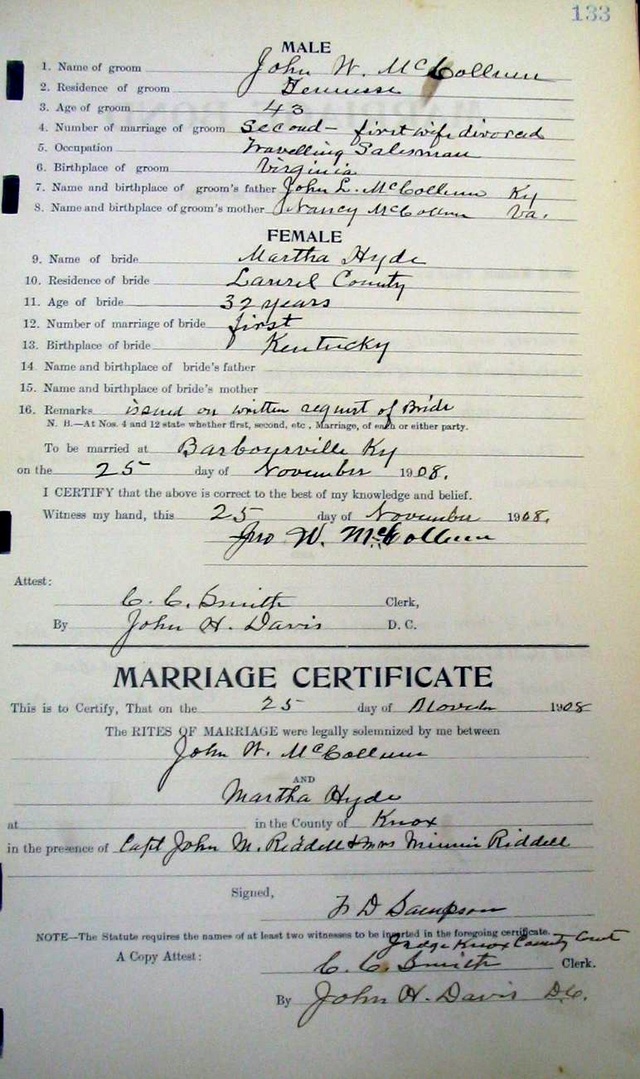 133
MALE
1. Name of groom John W. McCollum
2. Residence of groom Tennessee
3. Age of groom 43
4. Number of marriage of groom Second - first wife divorced
5. Occupation Travelling Salesman
6. Birthplace of groom Virginia
7. Name and birthplace of groom's father John L. McCollum Ky
8. Name and birthplace of groom's mother Nancy McCollum Va.
FEMALE
9. Name of bride Martha Hyde
10. Residence of bride Laurel County
11. Age of bride 32 years
12. Number of marriage of bride first
13. Birthplace of bride Kentucky
14. Name and birthplace of bride's father
15. Name and birthplace of bride's mother
16. Remarks issued on written request of Bride
N. B.—At Nos. 4 and 12 state whether first, second, etc., Marriage, of each or either party.
To be married at Barbourville Ky
on the 25 day of November 1908.
I CERTIFY that the above is correct to the best of my knowledge and belief.
Witness my hand, this 25 day of November 1908.
Jno W. McCollum
Attest:
C. C. Smith Clerk,
By John H. Davis D. C.
MARRIAGE CERTIFICATE
This is to Certify, That on the 25 day of 1908
The RITES OF MARRIAGE were legally solemnized by me between
John W. McCollum
AND
Martha Hyde
at in the County of Knox
in the presence of Capt John M. Riddell & Mrs Minnie Riddell
Signed,
F D Sampson
NOTE—The Statute requires the names of at least two witnesses to be inserted in the foregoing certificate.
Judge Knox County Court
A Copy Attest: C. C. Smith Clerk.
By John H. Davis D.C.